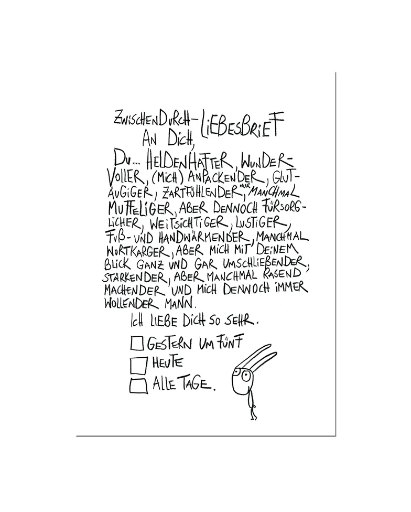 ZWISCHENDURCH-LIEBESBRIEF
AN DICH,
DU... HELDENHAFTER, WUNDER-
VOLLER, (MICH) ANPACKENDER, GLUT-
ÄUGIGER, ZARTFÜHLENDER, NUR MANCHMAL
MUFFELIGER, ABER DENNOCH FÜRSORG-
LICHER, WEITSICHTIGER, LUSTIGER,
FUß- UND HANDWÄRMENDER, MANCHMAL
WORTKARGER, ABER MICH MIT DEINEM
BLICK GANZ UND GAR UMSCHLIEßENDER,
STÄRKENDER, ABER MANCHMAL RASEND
MACHENDER UND MICH DENNOCH IMMER
WOLLENDER MANN.
ICH LIEBE DICH SO SEHR.
GESTERN UM FÜNF
HEUTE
ALLE TAGE.